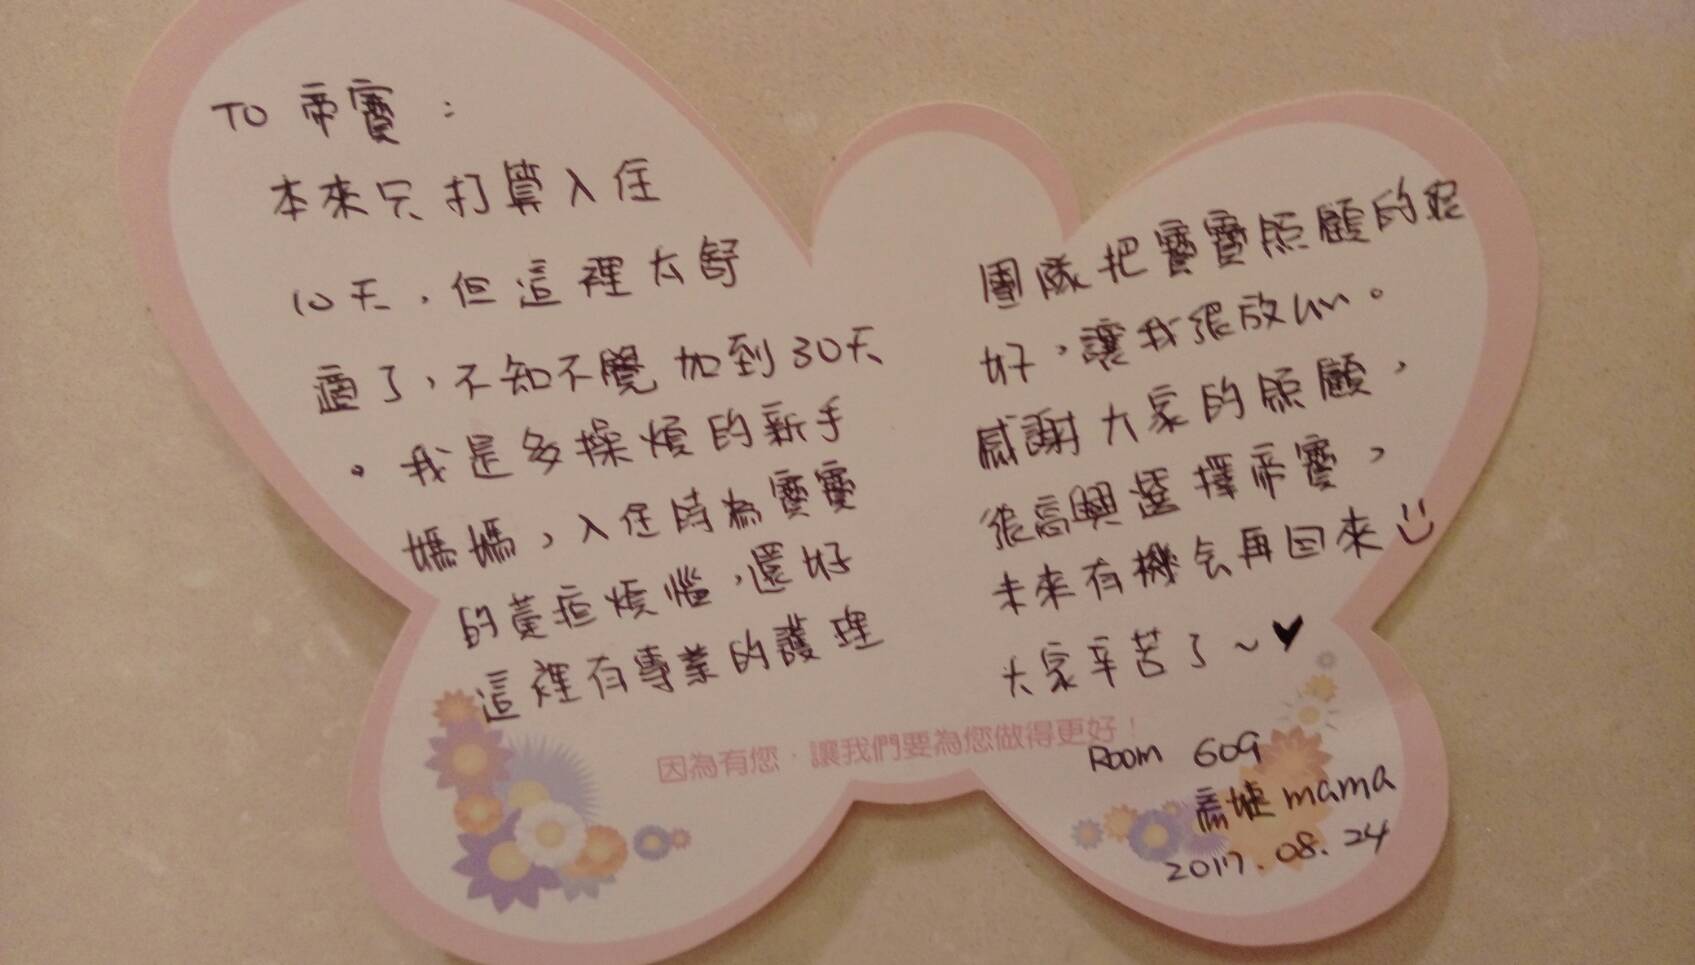 TO 帝寶：
本來只打算入住
10天，但這裡太舒
適了，不知不覺加到30天
。我是多操煩的新手
媽媽，入住時為寶寶
的黃疸煩惱，還好
這裡有專業的護理
團隊把寶寶照顧的很
好，讓我很放心。
感謝大家的照顧，
很高興選擇帝寶，
未來有機会再回來
大家辛苦了～♥
因為有您，讓我們要為您做得更好！
Room 609
mama
2017.08.24